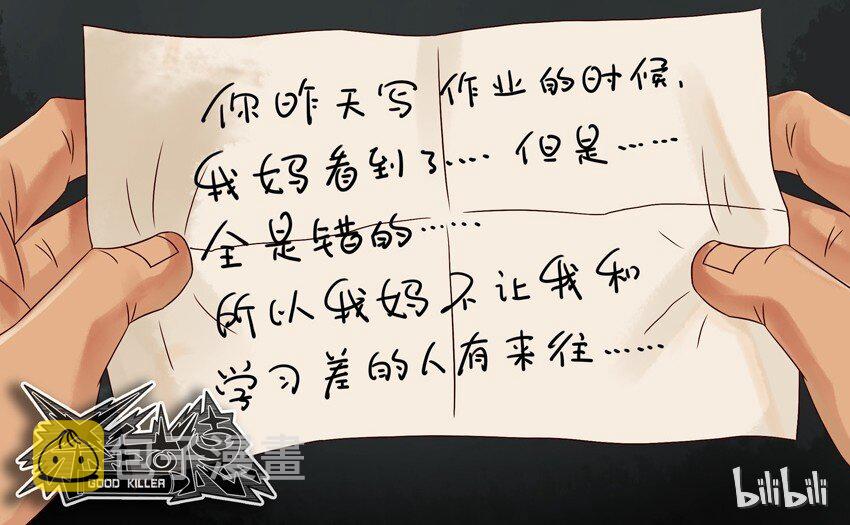 你昨天写作业的时候,
我妈看到了…. 但是……
全是错的……
所以我妈不让我和
学习差的人有来往……
包子漫畫
GOOD KILLER
bilibili